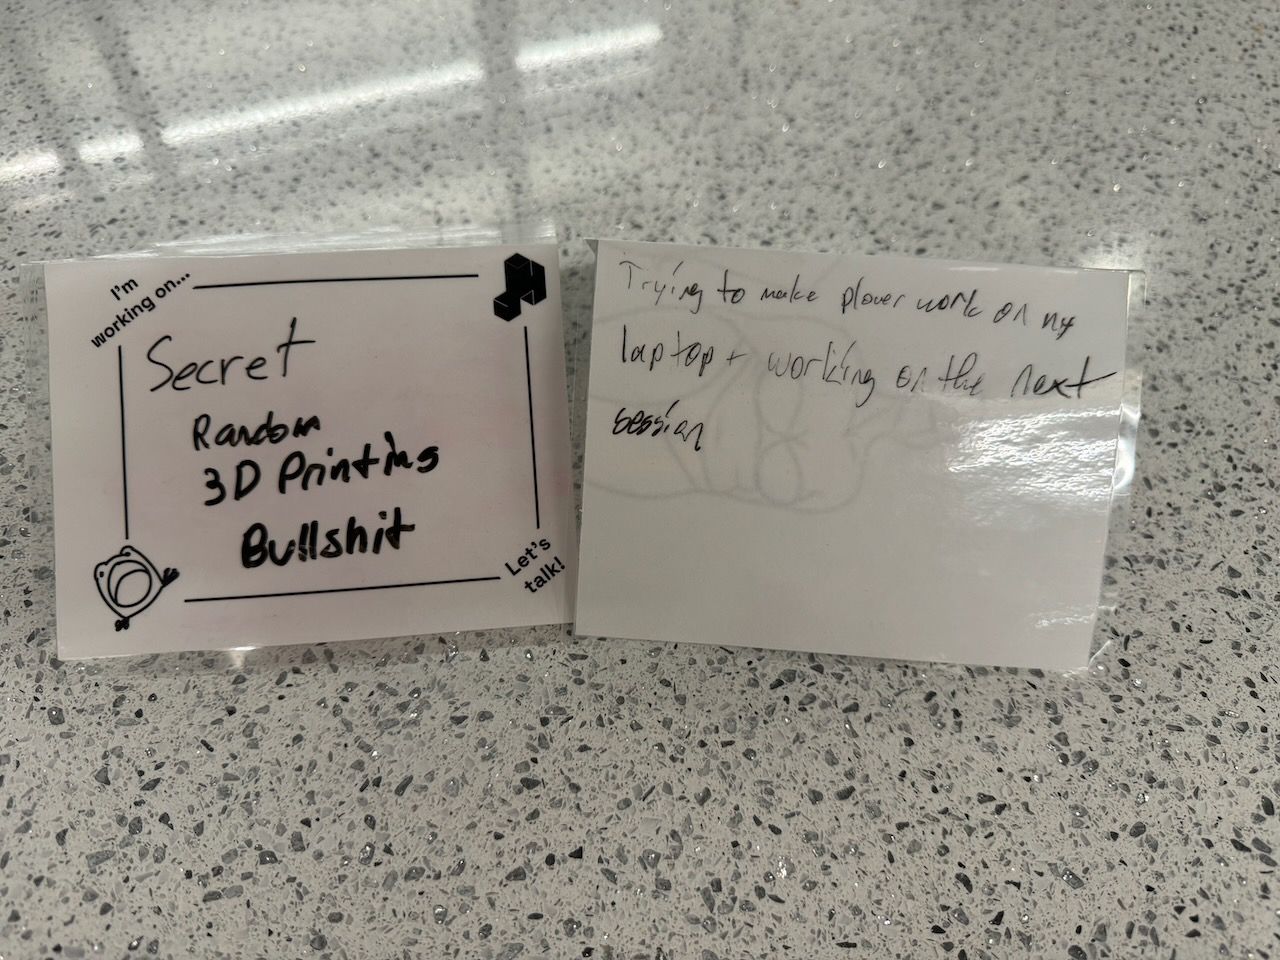 I'm
working on...
Secret
Random
3D Printing
Bullshit
Let's
talk!
Trying to make plover work on my
laptop + working on the next
session